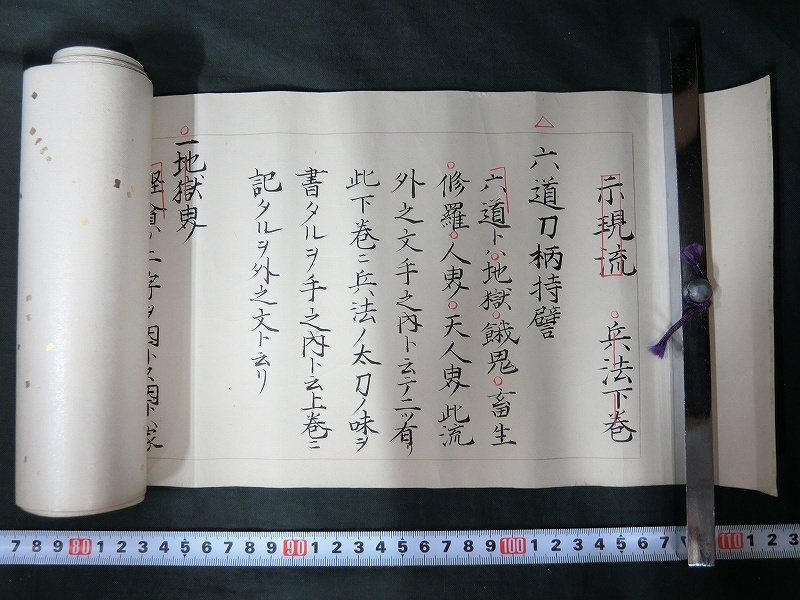 示現流 兵法下巻
六道刀柄持譬
六道トハ地獄餓鬼畜生
修羅人畍天人畍此流
外之文手之内ト云テ二ツ有リ
此下巻ニ兵法ノ太刀ノ味ヲ
書タルヲ手之内ト云上巻ニ
記タルヲ外之文ト云リ
一地獄畍ノ
慳貪ノ二字ヲ因トス因ト
7 8 9 80 1 2 3 4 5 6 7 8 9 90 1 2 3 4 5 6 7 8 9 100 1 2 3 4 5 6 7 110 1 2 3